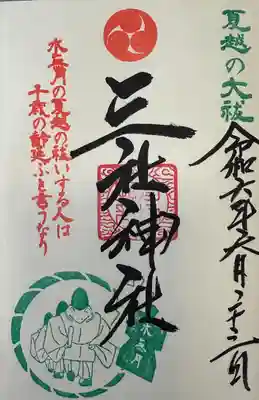 夏越の大祓
令和六年六月二十二日
三社神社
水無月の夏越の祓いする人は
千歳の齢延ぶと言うなり
水無月